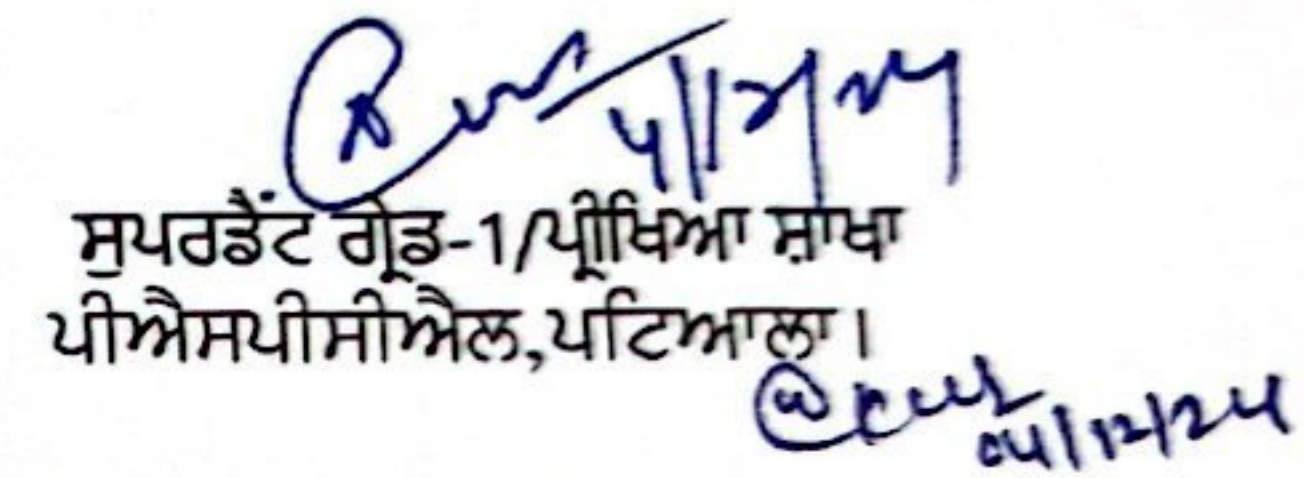 4/12/24
ਸੁਪਰਡੈਂਟ ਗ੍ਰੇਡ-1/ਪ੍ਰੀਖਿਆ ਸ਼ਾਖਾ
ਪੀਐਸਪੀਸੀਐਲ,ਪਟਿਆਲਾ।
04/12/24